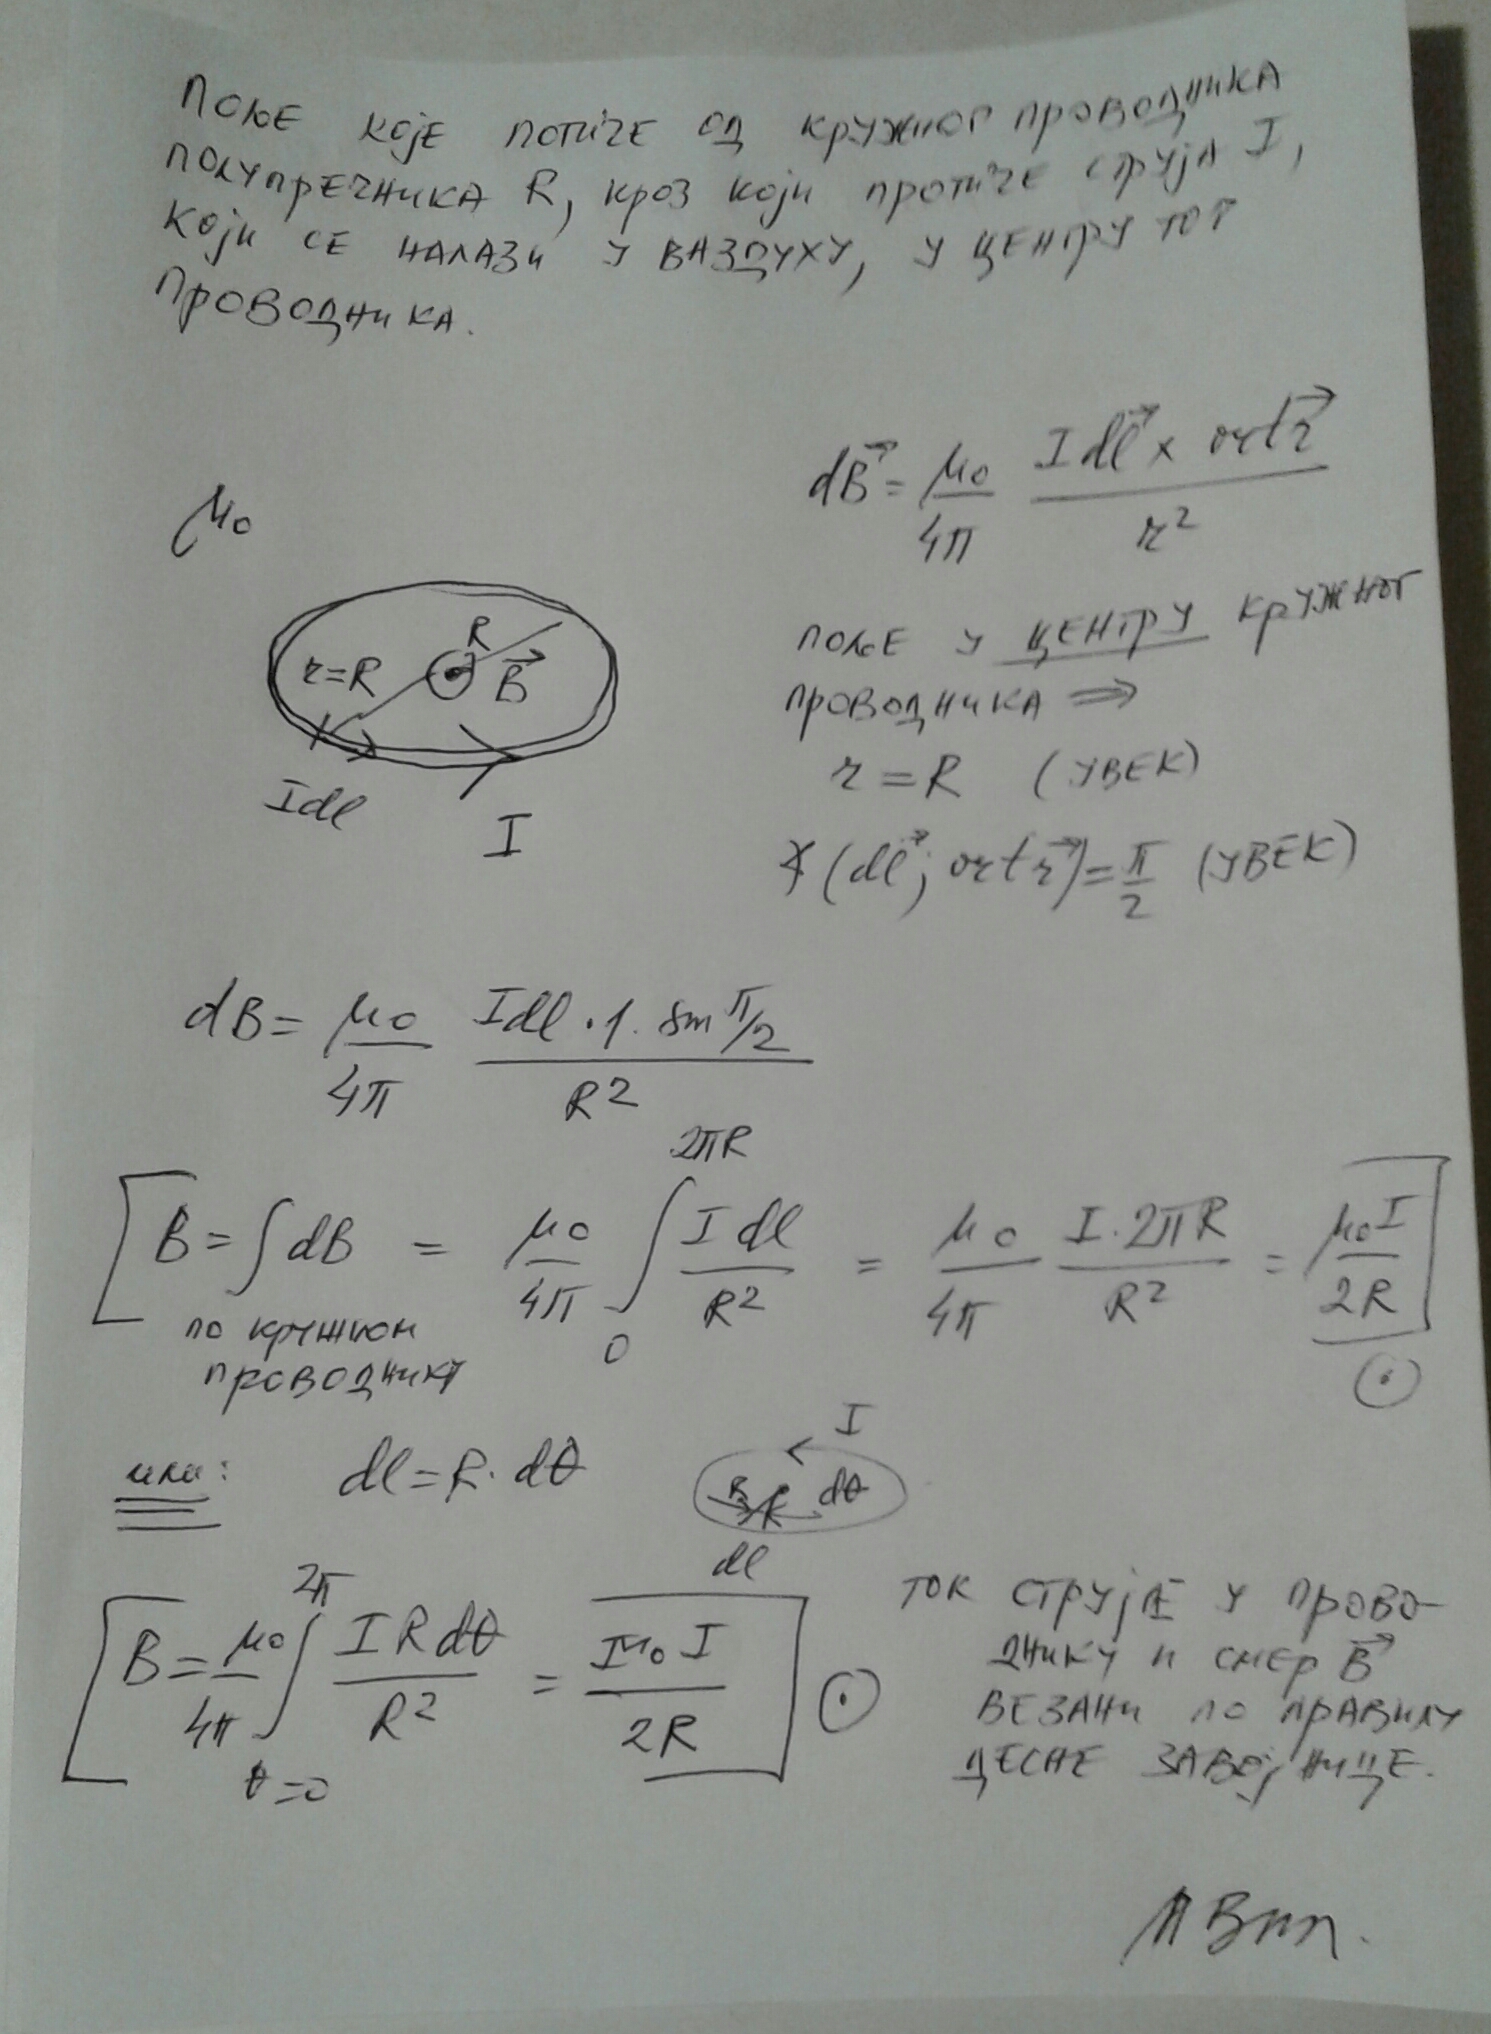 Поље које потиче од кружног проводника
полупречника R, кроз који протиче струја I,
који се налази у ваздуху, у центру тог
проводника.
dB⃗ = μ₀/4π · (I dl⃗ × ort r⃗)/r²
μ₀
R
r=R
B⃗
Idl
I
поље у центру кружног
проводника ⇒
r = R (увек)
∢(dl⃗; ort r⃗) = π/2 (увек)
dB = μ₀/4π · (Idl · 1 · sin π/2)/R²
B = ∫dB = μ₀/4π ∫₀^{2πR} I dl/R² = μ₀/4π · I·2πR/R² = μ₀I/2R
по кружном
проводнику
⊙
или: dl = R · dθ
I
R dθ
dl
B = μ₀/4π ∫_{θ=0}^{2π} I R dθ/R² = μ₀ I/2R ⊙
ток струје у прово-
днику и смер B⃗
везани по правилу
десне завојнице.